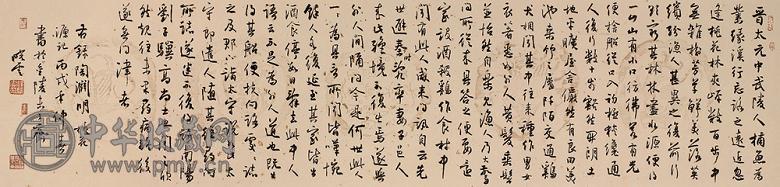 晉太元中武陵人捕魚爲
業緣溪行忘路之遠近忽
逢桃花林夾岸數百步中
無雜樹芳草鮮美落英
繽紛漁人甚異之復前行
欲窮其林林盡水源便得
一山山有小口仿佛若有光
便捨船從口入初極狹纔通
人復行數十步豁然開朗土
地平曠屋舍儼然有良田美
池桑竹之屬阡陌交通雞
犬相聞其中往來種作男女
衣着悉如外人黄髮垂髫
並怡然自樂見漁人乃大驚
問所從來具答之便要還
家設酒殺雞作食村中
聞有此人咸來問訊自云先
世避秦時亂率妻子邑人
來此絶境不復出焉遂與外
人間隔問今是何世此人
一爲具言所聞皆嘆惋
餘人各復延至其家皆出
酒食停數日辭去此中人
語云不足爲外人道也既出
得其船便扶向路處處誌
之及郡下詣太守說如此太
守即遣人隨其往尋向所
誌遂迷不復得路南陽
劉子驥高尚士也聞之欣
然規往未果尋病終後
遂無問津者
右録陶淵明桃花
源記丙戌年仲
書於金陵
中华收藏网
www.pmcv.cn